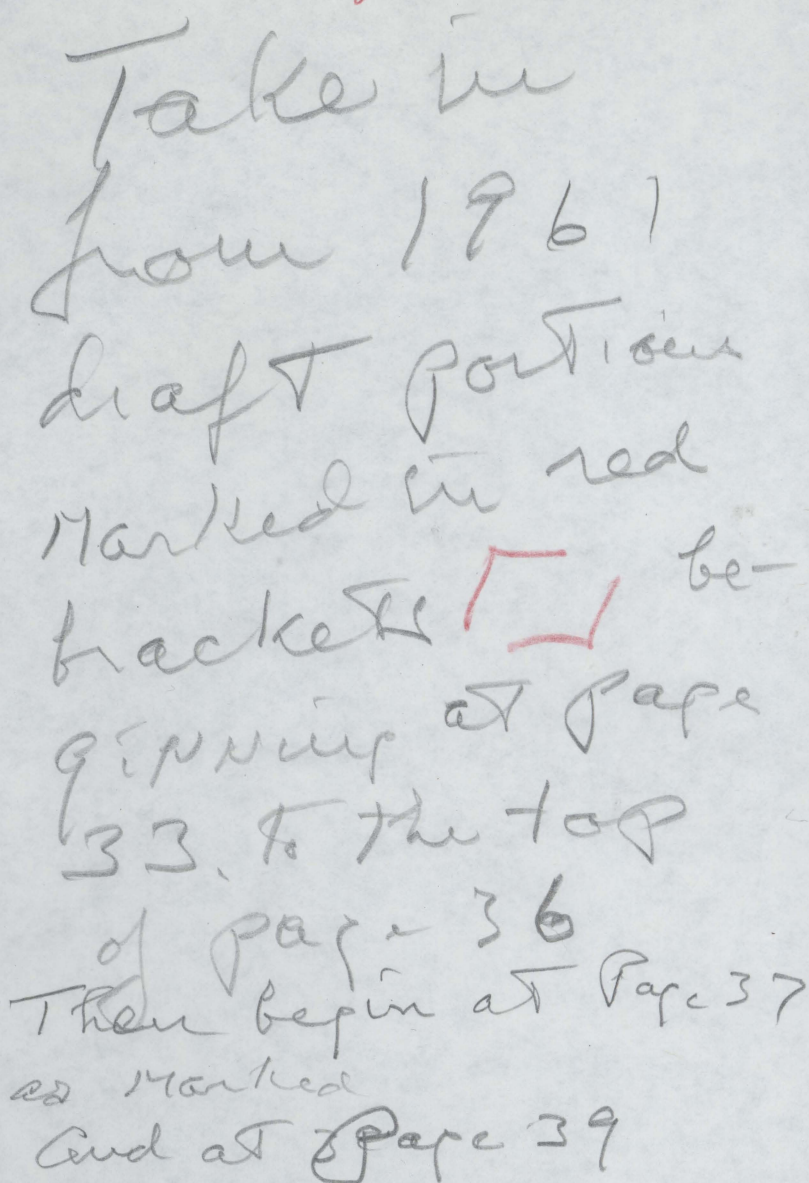 Take in
from 1961
draft portions
Marked in red
brackets be-
ginning at page
33. to the top
of page 36
Then begin at Page 37
as Marked
and at Page 39